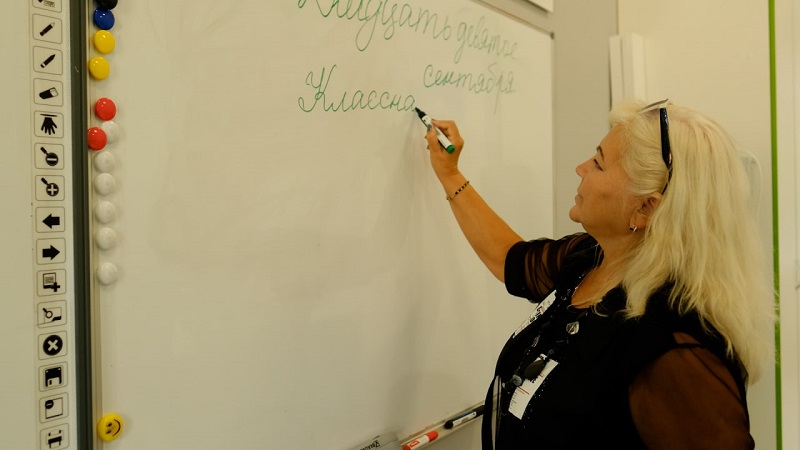 Двадцать девятое
сентября
Классна